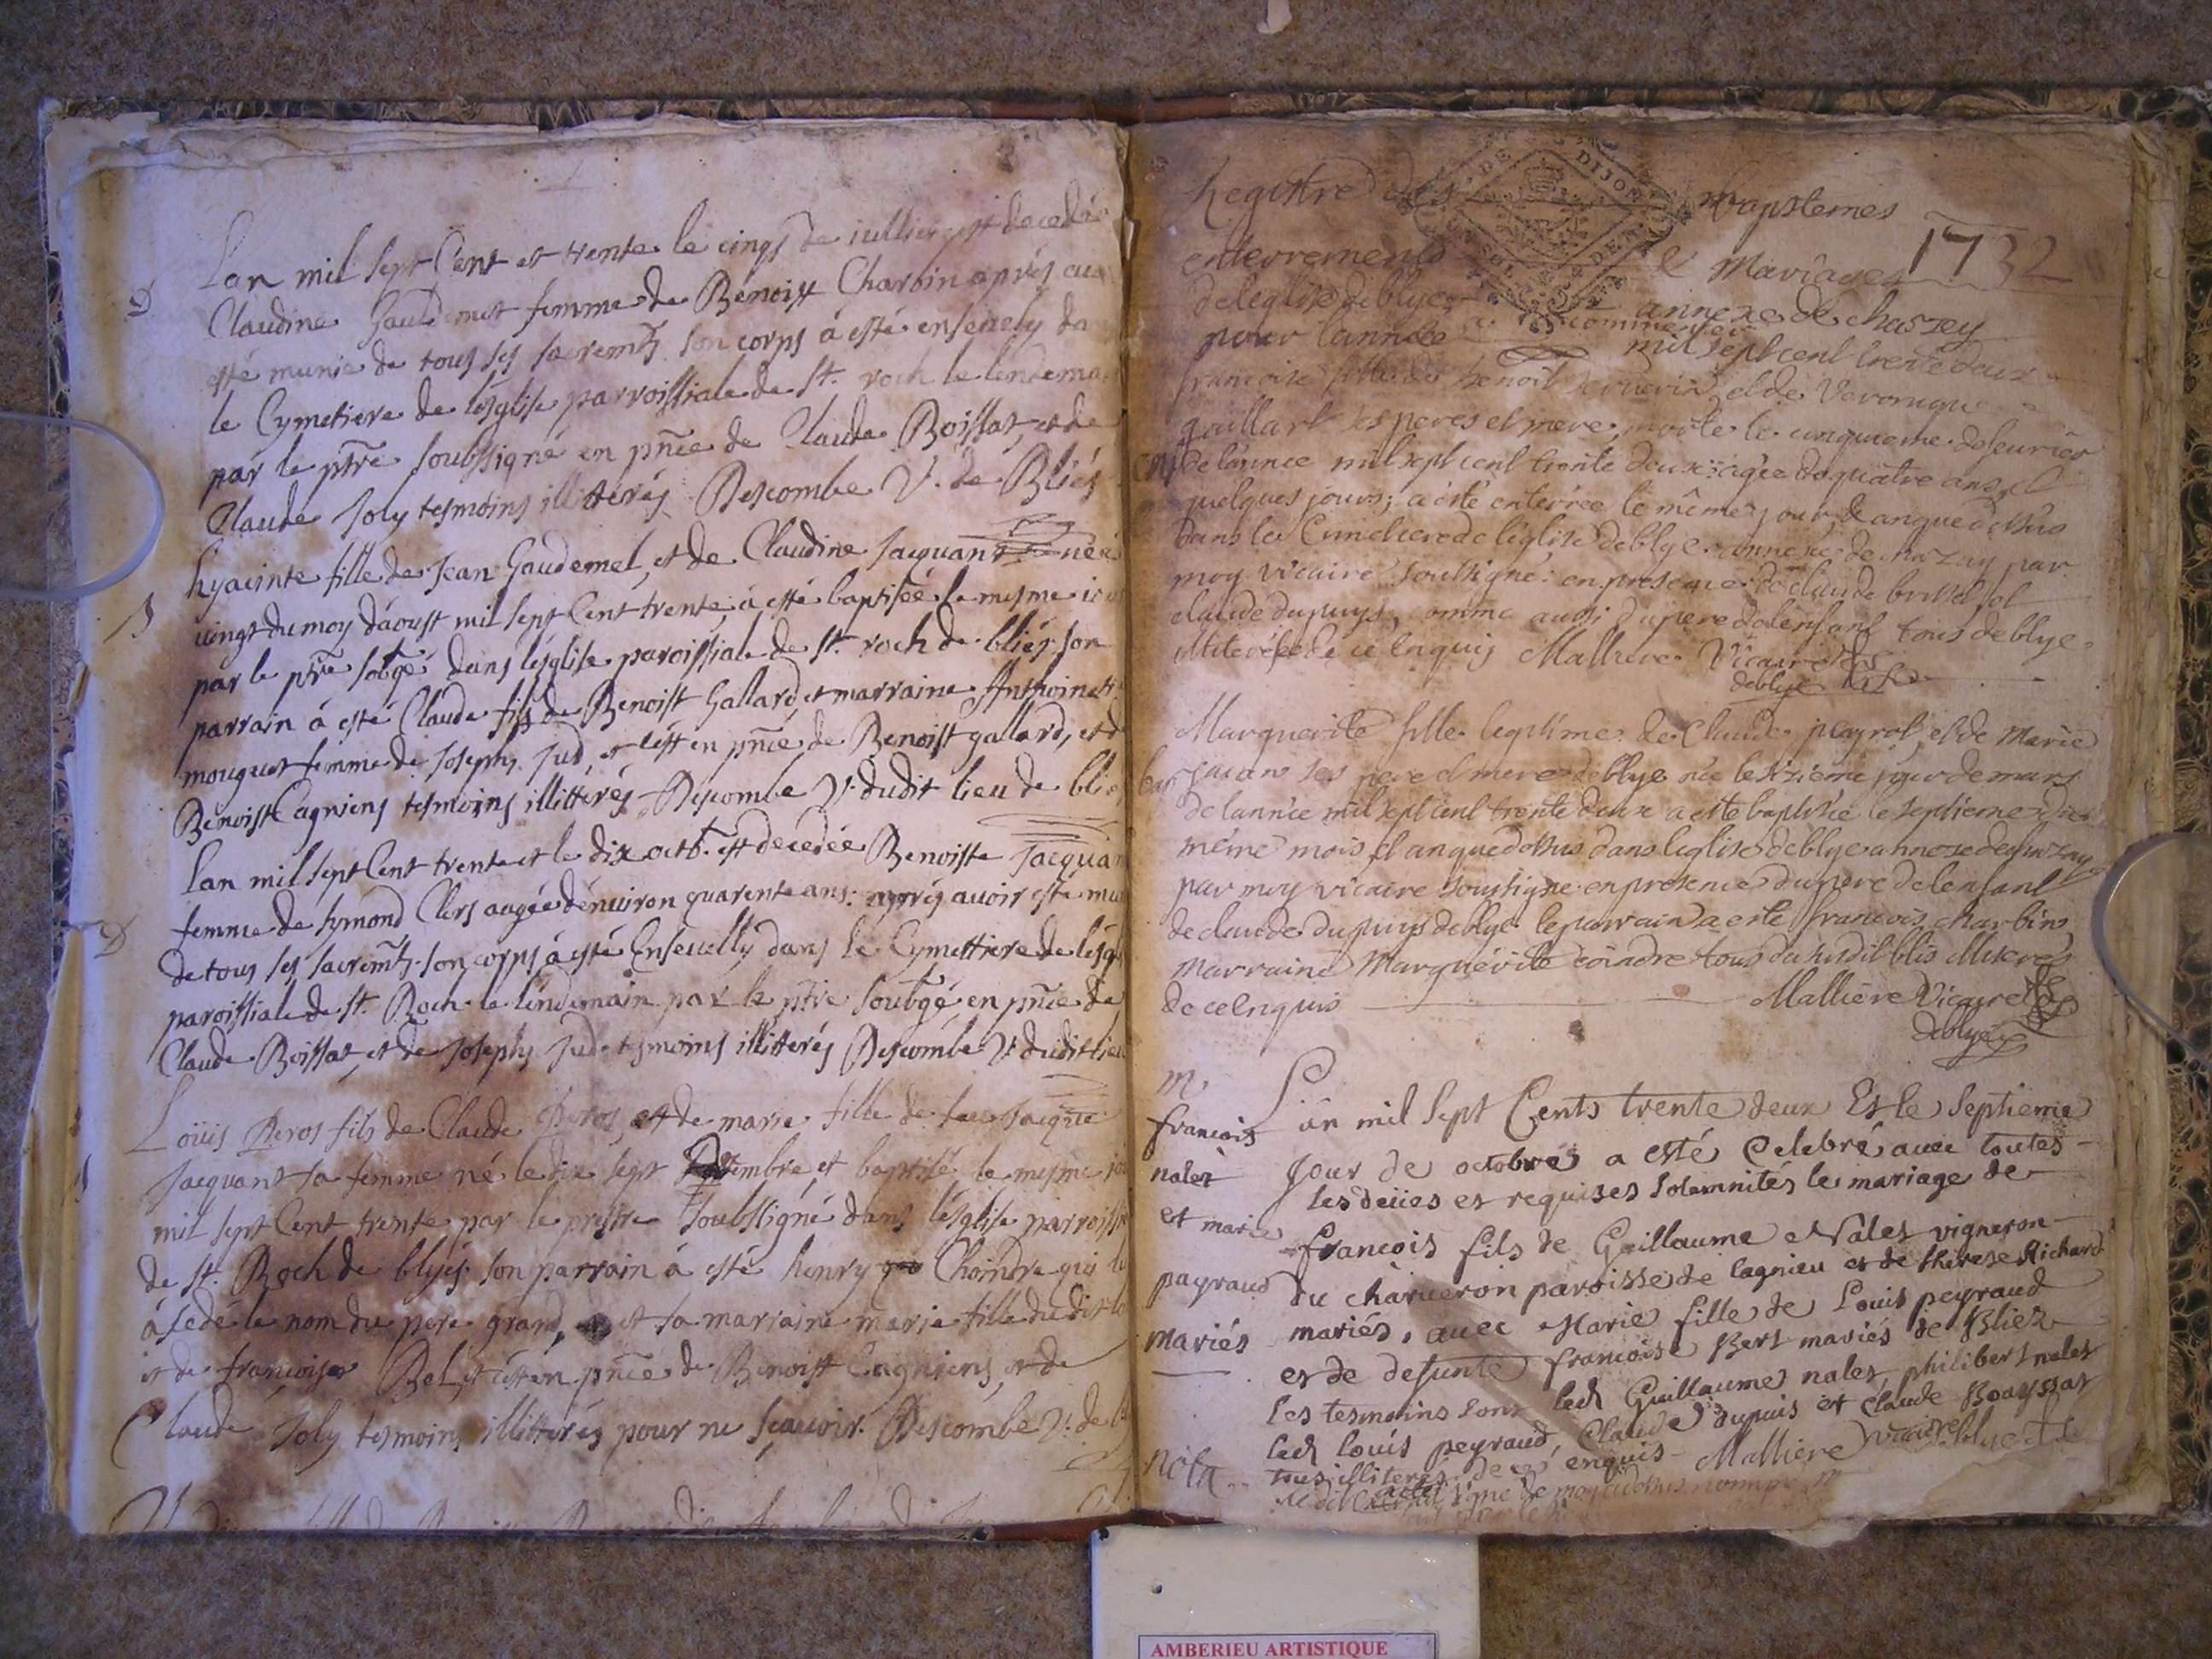 Lan mil sept Cent et trente le cinqs de iullier est decedée
Claudine Gaudemet femme de Benoist Charbin aprés auo
esté munie de tous ses sacremts son corps à esté enseuely da
le Cymetiere de lésglise parroissiale de St. roch le lendemai
par le ptre soubssigné en pnce de Claude Boissat, et de
Claude Joly tesmoins illitterés Descombe V. de Bliés
D
hyacinte fille de Jean Gaudemel, et de Claudine Jacquant née
uingt du moy dáoust mil sept Cent trente, à esté baptiséé le mesme io
par le ptre sobgé dans lésglise paroissiale de St. roch de bliés son
parrain à esté Claude fils de Benoist Gallard, et marraine Anthoinet
mouguet femme de Joseph Jud, et cést en pnce de Benoist gallard, et d
Benoist Cagniens tesmoins illitterés Descombe V. dudit lieu de blié
Lan mil sept Cent trente et le dix octb. est decedée Benoiste Jacqua
femme de symond Clers augée dénuiron quarente ans: aprés auoir esté mu
de tous ses sacremts. son corps à esté Enseuelly dans le Cymettiere de lésg
paroissiale de St. Roch le lendemain par le ptre soubgé en pnce de
Claude Boissat, et de Joseph Jud tesmoins illitterés Descombe V. dudit lieu
D
Loüis Peros fils de Claude Peros, et de marie fille de Jacque
Jacquant sa femme né le dix sept embre, et baptisé le mesme jo
mil sept Cent trente par le prestre soubssigné dans lésglise parroiss
de St. Roch de blyés son parrain à esté henry Choindre qui l
à cedé le nom du pere grand, et sa marraine marie fille dudit
et de françoise Bel, et cést en pnce de Benoist Cagniens, et de
Claude Joly tesmoins illitterés pour ne sçauoir. Descombe V. de
Registre des bapstemes
enterrements & Mariages 1732
de leglise de blye annexe de chazey
pour lannée a commencer mil sept cent trente deux
francoise fille de benoit et de Veronique
gaillart ses peres et mere, morte le cinquieme de feurier
de lannee mil sept cent trente deux: agée de quatre ans et
quelques jours; a été enterrée le même jour, & an que dessus
dans le Cimetiere de léglise de blye annexe de chazay par
moy vicaire soussigné: en presence de claude boissat
claude dupuys, comme aussi du pere de lenfant tous de blye.
illiterés de ce enquis Malliere Vicaire
de blye
Marguerite fille legitime de Claude peyrot, et de Marie
ses pere et mere de blye née le sizieme jour de mars
de lannée mil sept cent trente deux a esté baptisée le septieme du
méme mois et an que dessus dans leglise de blye annexe de chazay
par moy vicaire soussigne en presence du pere de lenfant
de claude dupuys de blye le parrain a esté francois charbin
marraine Marguérite coindre tous du susdit bliś illiterés
de ce enquis Malliere Vicaire
de blye
m.
francois
nalet
et marie
payraud
mariés
L'an mil sept Cents trente deux Et le septieme
jour de octobre a esté Celebré auec toutes
les deües et requises solemnités le mariage de
francois fils de Guillaume Nalet vigneron
du charueron paroisse de lagnieu et de therese Richard
mariés, auec Marie fille de Louis peyraud
et de defunte francoise Bert mariés de Bliez
les tesmoins sont led. Guillaume nalet, philibert nalet
led. louis peyraud, Claude dupuis et claude Boayssat
tous illiteres de ce enquis Malliere vicaire blye
nota